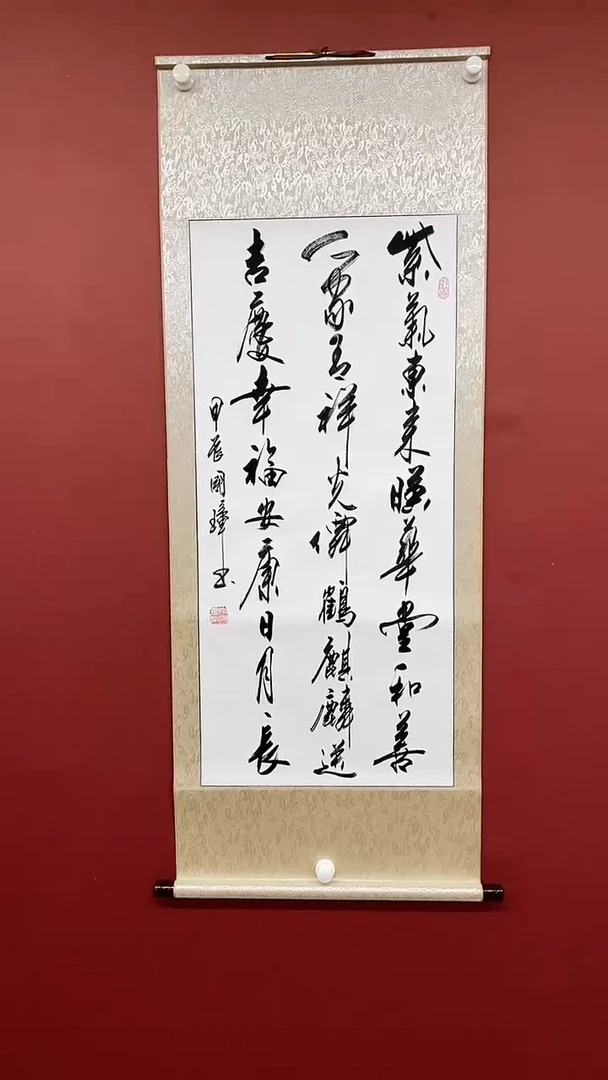 紫氣東來暎華堂和善
之家有祥光僊鶴麒麟送
吉慶幸福安康日月長
甲辰國璋书